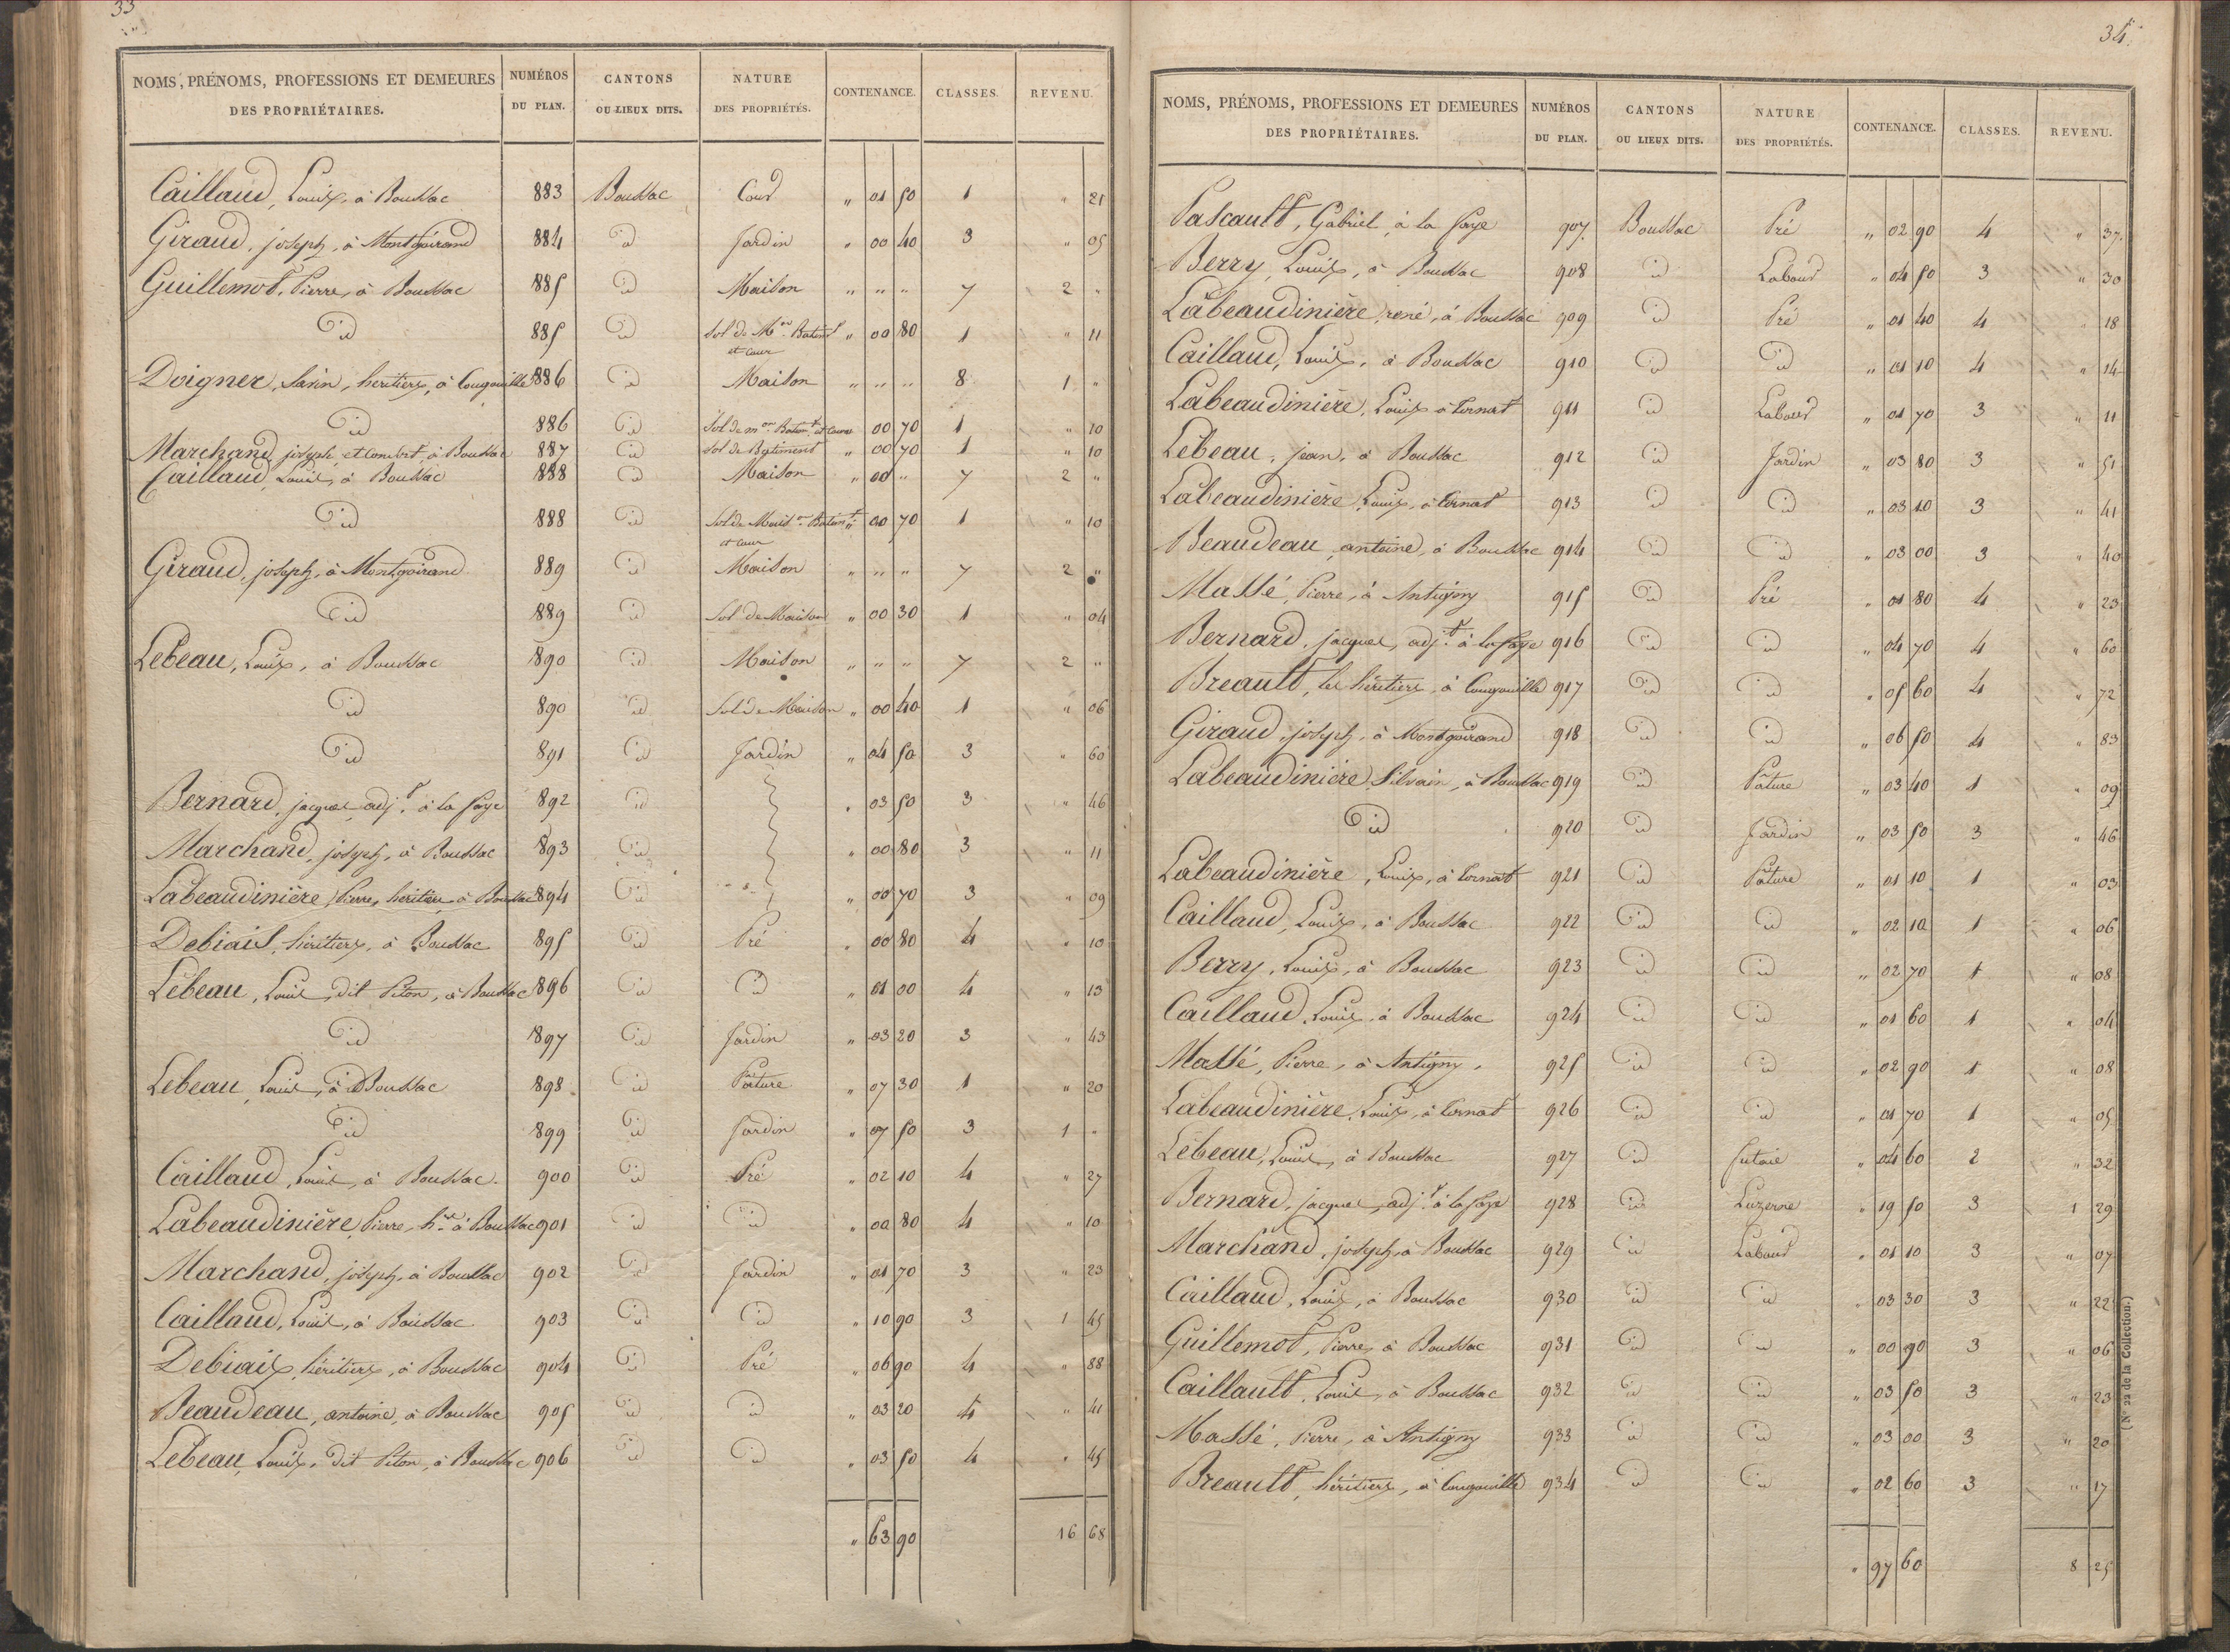 33
NOMS, PRÉNOMS, PROFESSIONS ET DEMEURES DES PROPRIÉTAIRES. NUMÉROS DU PLAN. CANTONS OU LIEUX DITS. NATURE DES PROPRIÉTÉS. CONTENANCE. CLASSES. REVENU.
Caillaud, Louis, à Boussac 883 Boussac Cour " 01 50 1 " 21
Giraud, joseph, à Montgoirand 884 id Jardin " 00 40 3 " 05
Guillemot, Pierre, à Boussac 885 id Maison " " " 7 2 "
id 885 id Sol de Mon Batimt et cour " 00 80 1 " 11
Doigner, Savin, heritiers, à Cougouille 886 id Maison " " " 8 1 "
id 886 id Sol de mon Batimt et cour 00 70 1 " 10
Marchand, joseph et consort, à Boussac 887 id Sol de Batiment " 00 70 1 " 10
Caillaud, Louis, à Boussac 888 id Maison " 00 " 7 2 "
id 888 id Sol de Maison Batimt et cour " 00 70 1 " 10
Giraud, joseph, à Montgoirand 889 id Maison " " " 7 2 "
id 889 id Sol de Maison " 00 30 1 " 04
Lebeau, Louis, à Boussac 890 id Maison " " " 7 2 "
id 890 id Sol de Maison " 00 40 1 " 06
id 891 id Jardin " 04 50 3 " 60
Bernard, jacques, adjt à la faye 892 id " 03 50 3 " 46
Marchand, joseph, à Boussac 893 id " 00 80 3 " 11
Labeaudinière, Pierre, heritiers à Boussac 894 id " 00 70 3 " 09
Debiais, héritiers, à Boussac 895 id Pré " 00 80 4 " 10
Lebeau, Louis, dit Piton, à Boussac 896 id id " 01 00 4 " 13
id 897 id Jardin " 03 20 3 " 43
Lebeau, Louis, à Boussac 898 id Pature " 07 30 1 " 20
id 899 id Jardin " 07 50 3 1 "
Caillaud, Louis, à Boussac 900 id Pré " 02 10 4 " 27
Labeaudinière, Pierre, hers à Boussac 901 id id " 00 80 4 " 10
Marchand, joseph, à Boussac 902 id Jardin " 01 70 3 " 23
Caillaud, Louis, à Boussac 903 id id " 10 90 3 1 45
Debiais, héritiers, à Boussac 904 id Pré " 06 90 4 " 88
Beaudeau, antoine, à Boussac 905 id id " 03 20 4 " 41
Lebeau, Louis, dit Piton, à Boussac 906 id id " 03 50 4 " 45
" 63 90 16 68
34
NOMS, PRÉNOMS, PROFESSIONS ET DEMEURES DES PROPRIÉTAIRES. NUMÉROS DU PLAN. CANTONS OU LIEUX DITS. NATURE DES PROPRIÉTÉS. CONTENANCE. CLASSES. REVENU.
Pascault, Gabriel, à la faye 907 Boussac Pré " 02 90 4 " 37
Berry, Louis, à Boussac 908 id Labour " 04 50 3 " 30
Labeaudinière, rené, à Boussac 909 id Pré " 01 40 4 " 18
Caillaud, Louis, à Boussac 910 id id " 01 10 4 " 14
Labeaudinière, Louis à Cornat 911 id Labour " 01 70 3 " 11
Lebeau, jean, à Boussac 912 id Jardin " 03 80 3 " 51
Labeaudinière, Louis, à Cornat 913 id id " 03 10 3 " 41
Beaudeau, antoine, à Boussac 914 id id " 03 00 3 " 40
Massé, Pierre, à Antigny 915 id Pré " 01 80 4 " 23
Bernard, jacques, adjt à la faye 916 id id " 04 70 4 " 60
Breault, les héritiers, à Cougouille 917 id id " 05 60 4 " 72
Giraud, joseph, à Montgoirand 918 id id " 06 50 4 " 83
Labeaudinière, Silvain, à Boussac 919 id Pâture " 03 40 1 " 09
id 920 id Jardin " 03 50 3 " 46
Labeaudinière, Louis, à Cornat 921 id Pâture " 01 10 1 " 03
Caillaud, Louis, à Boussac 922 id id " 02 10 1 " 06
Berry, Louis, à Boussac 923 id id " 02 70 1 " 08
Caillaud, Louis, à Boussac 924 id id " 01 60 1 " 04
Massé, Pierre, à Antigny 925 id id " 02 90 1 " 08
Labeaudinière, Louis, à Cornat 926 id id " 01 70 1 " 05
Lebeau, Louis, à Boussac 927 id futaie " 04 60 2 " 32
Bernard, jacques, adjt à la faye 928 id Luzerne " 19 50 3 1 29
Marchand, joseph, à Boussac 929 id Labour " 01 10 3 " 07
Caillaud, Louis, à Boussac 930 id id " 03 30 3 " 22
Guillemot, Pierre, à Boussac 931 id id " 00 90 3 " 06
Caillault, Louis, à Boussac 932 id id " 03 50 3 " 23
Massé, Pierre, à Antigny 933 id id " 03 00 3 " 20
Breault, héritiers, à Cougouille 934 id id " 02 60 3 " 17
" 97 60 8 25
(N° 22 de la Collection.)